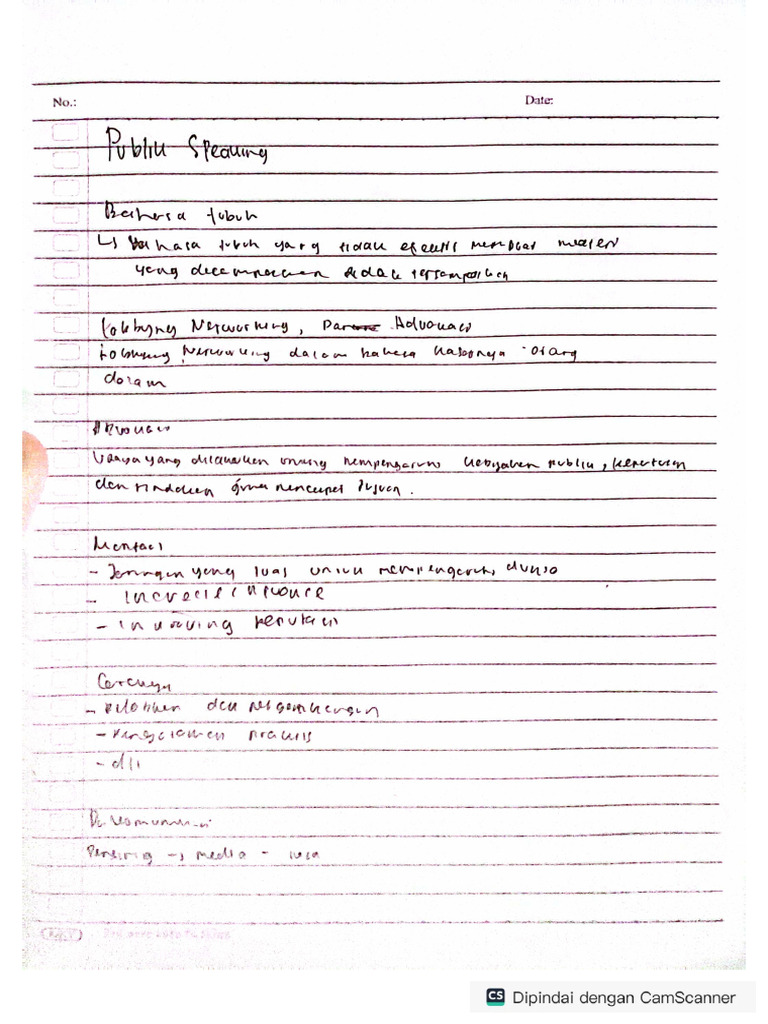 No.:
Date:
Publik Speaking
Bahasa tubuh
↳ Bahasa tubuh yang tidak efektif membuat materi
yang disampaikan tidak tersampaikan
Lobbying Networking, Advokasi
Lobbying Networking dalam bahasa orang
dalam
Advokasi
Upaya yang dilakukan untuk mempengaruhi kebijakan publik, keputusan
dan tindakan guna mencapai tujuan.
Manfaat
- Jaringan yang luas untuk mempengaruhi dunia
- Increase influence
- reputasi
Caranya
- Pelatihan dan pengembangan
- Pengalaman praktis
- dll
Penting → media -
CS Dipindai dengan CamScanner